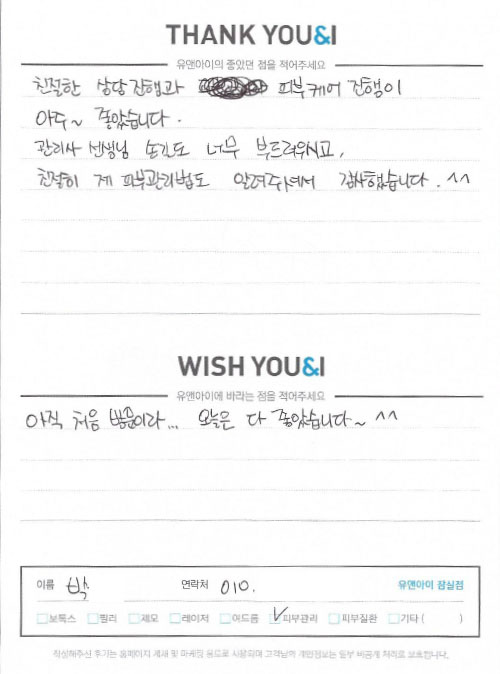 THANK YOU&I
유앤아이의 좋았던 점을 적어주세요
친절한 상담 진행과 피부케어 진행이
아주~ 좋았습니다.
관리사 선생님 손길도 너무 부드러우시고,
친절히 제 피부관리법도 알려주셔서 감사했습니다. ^^
WISH YOU&I
유앤아이에 바라는 점을 적어주세요
아직 처음 방문이라... 오늘은 다 좋았습니다~ ^^
이름 박 연락처 010. 유앤아이 잠실점
보톡스 필러 제모 레이저 여드름 ✓피부관리 피부질환 기타 ( )
작성해주신 후기는 홈페이지 게재 및 마케팅 용도로 사용되며 고객님의 개인정보는 일부 비공개 처리로 보호됩니다.